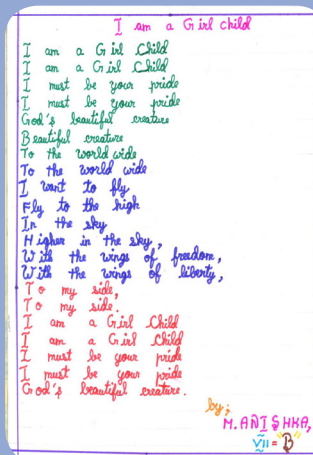 I am a Girl child
I am a Girl Child
I am a Girl Child
I must be your pride
I must be your pride
God's beautiful creature
Beautiful creature
To the world wide
To the world wide
I want to fly
Fly to the high
In the sky
Higher in the sky,
With the wings of freedom,
With the wings of liberty,
To my side,
To my side.
I am a Girl Child
I am a Girl Child
I must be your pride
I must be your pride
God's beautiful creature.
by;
M. ANISHKA,
VII - "B"